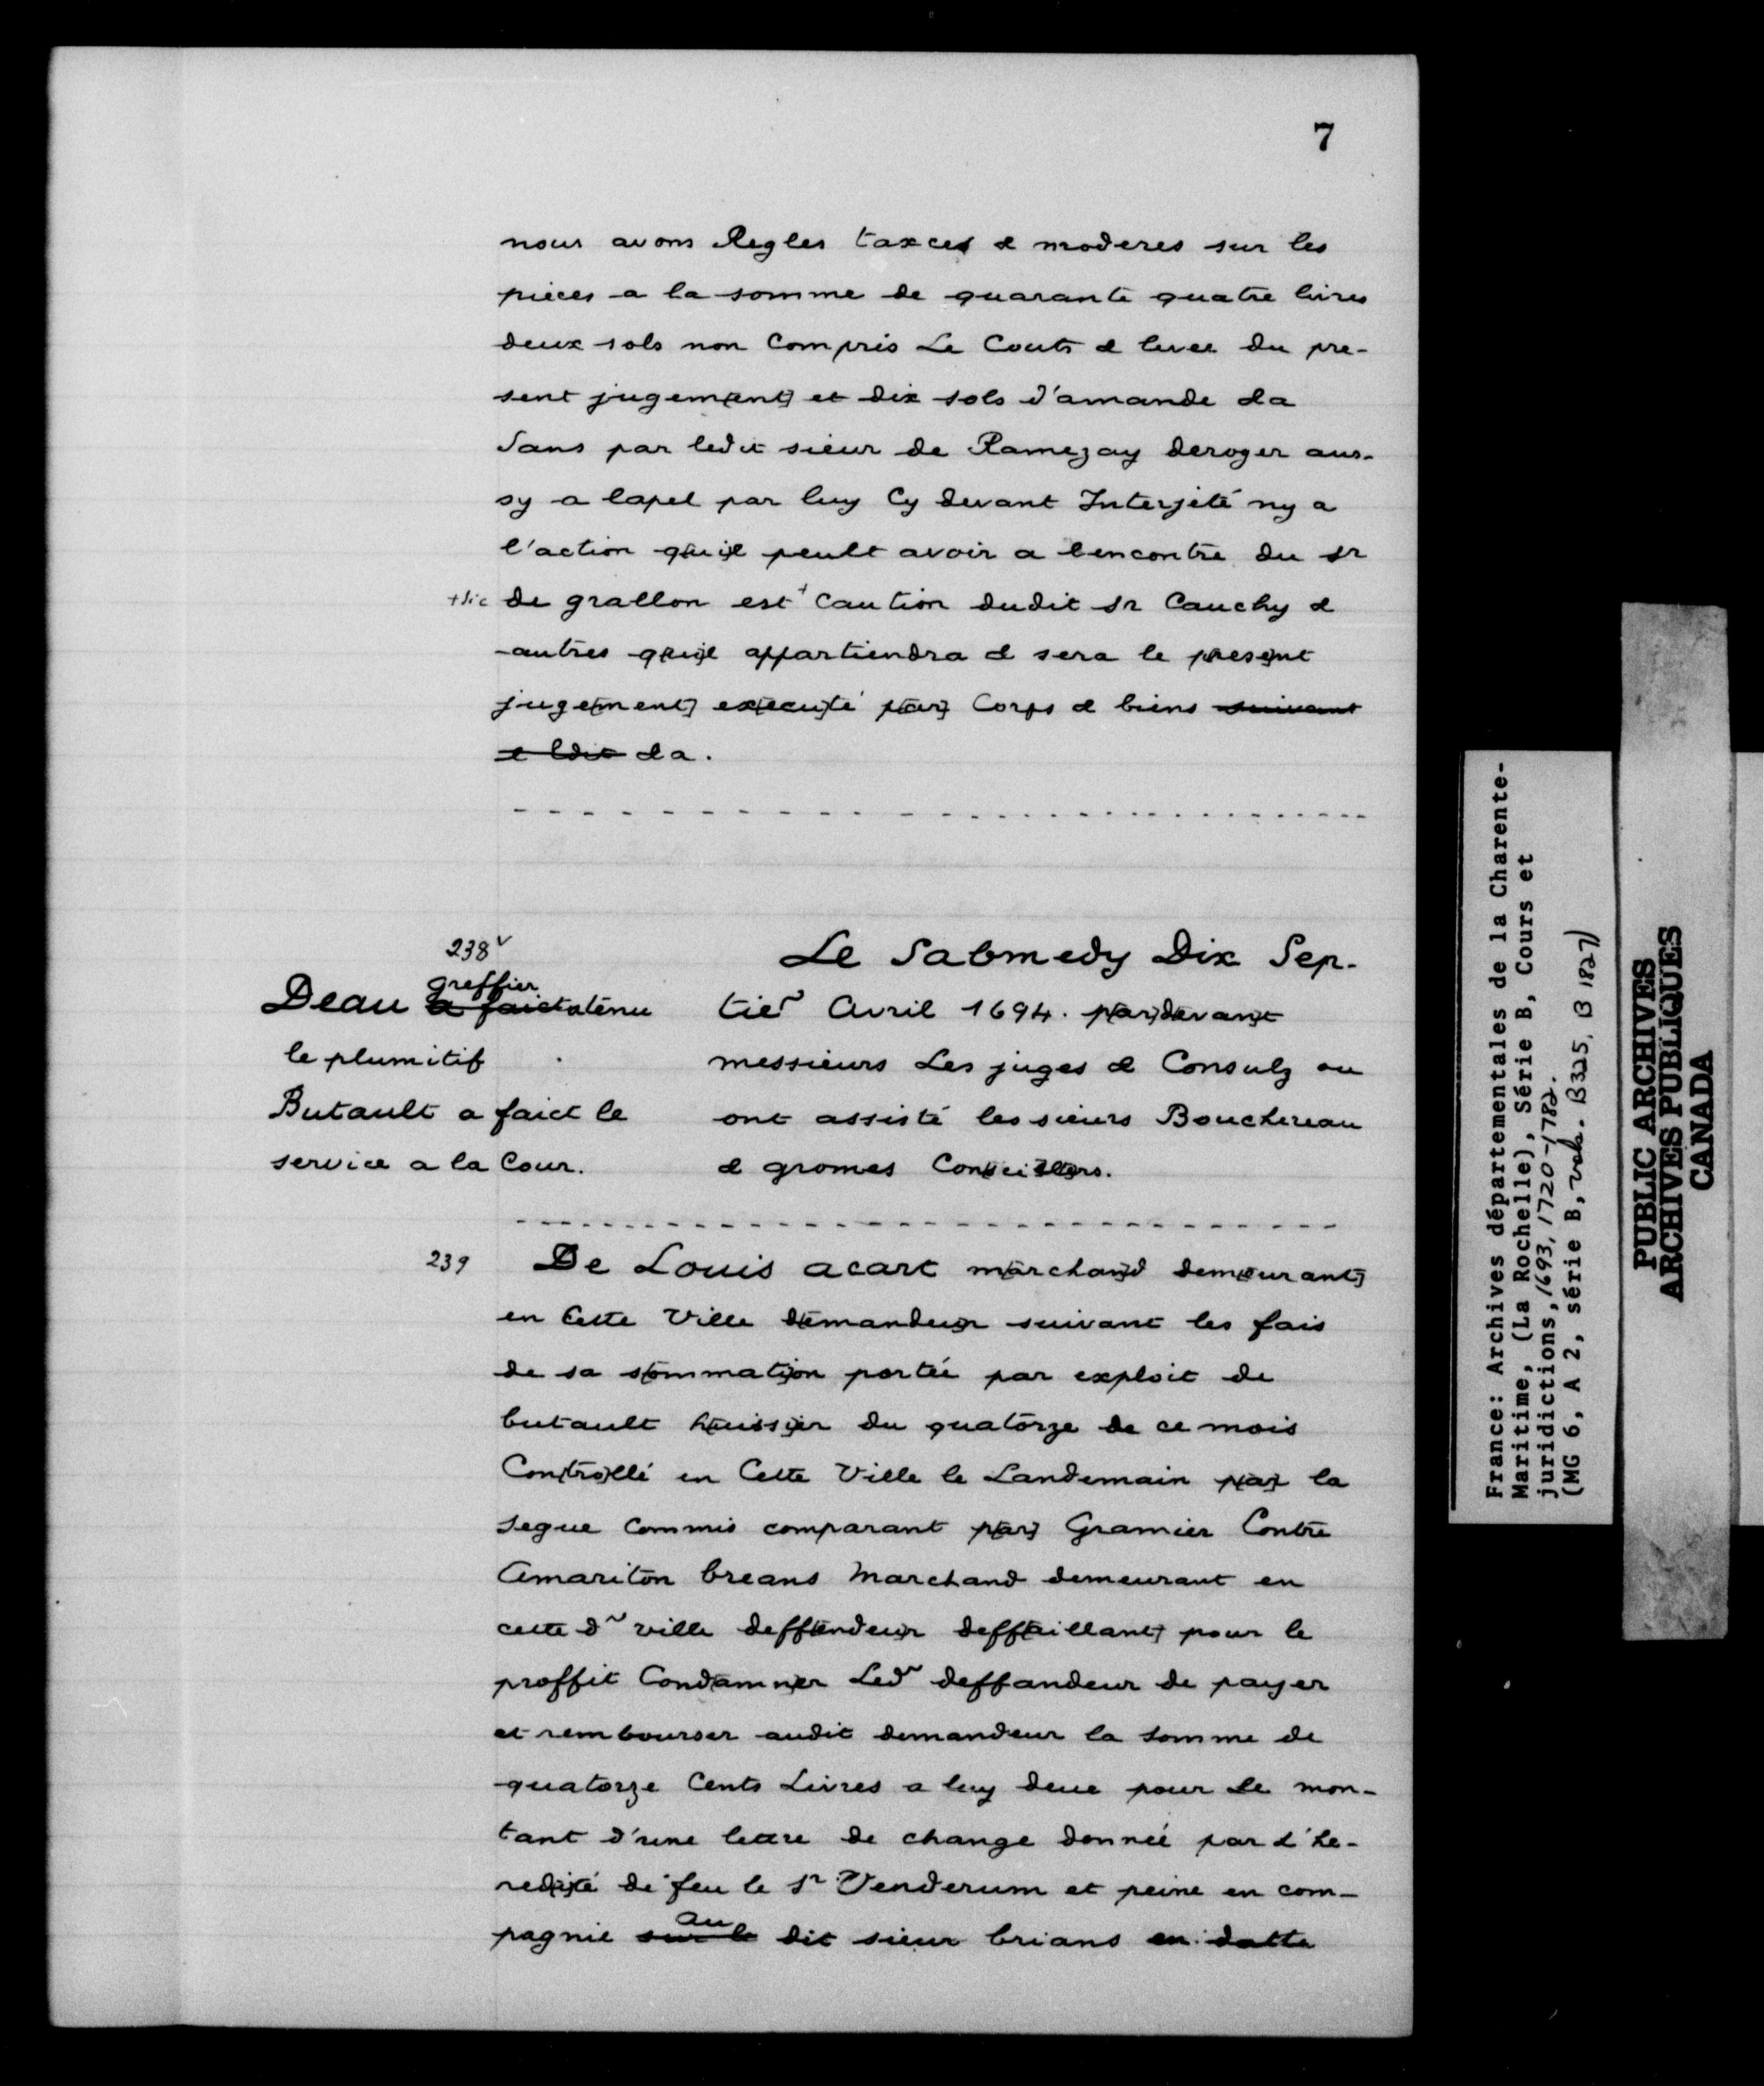 7
nous avons Regles taxces & moderes sur les
pieces a la somme de quarante quatre livres
deux sols non Compris Le Couts & levee du pre-
sent jugem[ent] et dix sols d'amande &a
Sans par ledit sieur de Ramezay deroger aus-
sy a lapel par luy Cy devant Interjeté ny a
l'action q[u'i]l peult avoir a lencontre du sr
+sic de grallon est+ Caution dudit sr Cauchy &
autres q[u'i]l appartiendra & sera le p[rese]nt
jug[ement] ex[ecu]té p[ar] Corps & biens suivant
& ldit &a.
238v
Deau a faict greffier a tenu
le plumitif
Butault a faict le
service a la Cour.
Le Sabmedy Dix Sep-
tie~ Avril 1694. p[ar]devan[t]
messieurs Les juges & Consulz ou
ont assisté les sieurs Bouchereau
& gromes Con[sei]llers.
239 De Louis acart m[archan]d dem[eurant]
en Cette Ville d[emandeu]r suivant les fais
de sa s[ommati]on portée par exploit de
butault h[uissi]er du quatorze de ce mois
Con[tro]llé en Cette Ville le Landemain p[ar] la
segue Commis comparant p[ar] Gramier Contre
Amariton breans Marchand demeurant en
cette d~ ville deff[endeu]r deff[aillant] pour le
proffit Cond[amn]er Led~ deffandeur de payer
et rembourser audit demandeur la somme de
quatorze Cents Livres a luy deue pour Le mon-
tant d'une lettre de change donnée par L'he-
red[i]té de feu le Sr Venderum et peine en com-
pagnie sur le au dit sieur brians en datte
France: Archives départementales de la Charente-
Maritime, (La Rochelle), Série B, Cours et
juridictions, 1693, 1720-1782.
(MG 6, A 2, série B, vols. B 325, B 1827)
PUBLIC ARCHIVES
ARCHIVES PUBLIQUES
CANADA